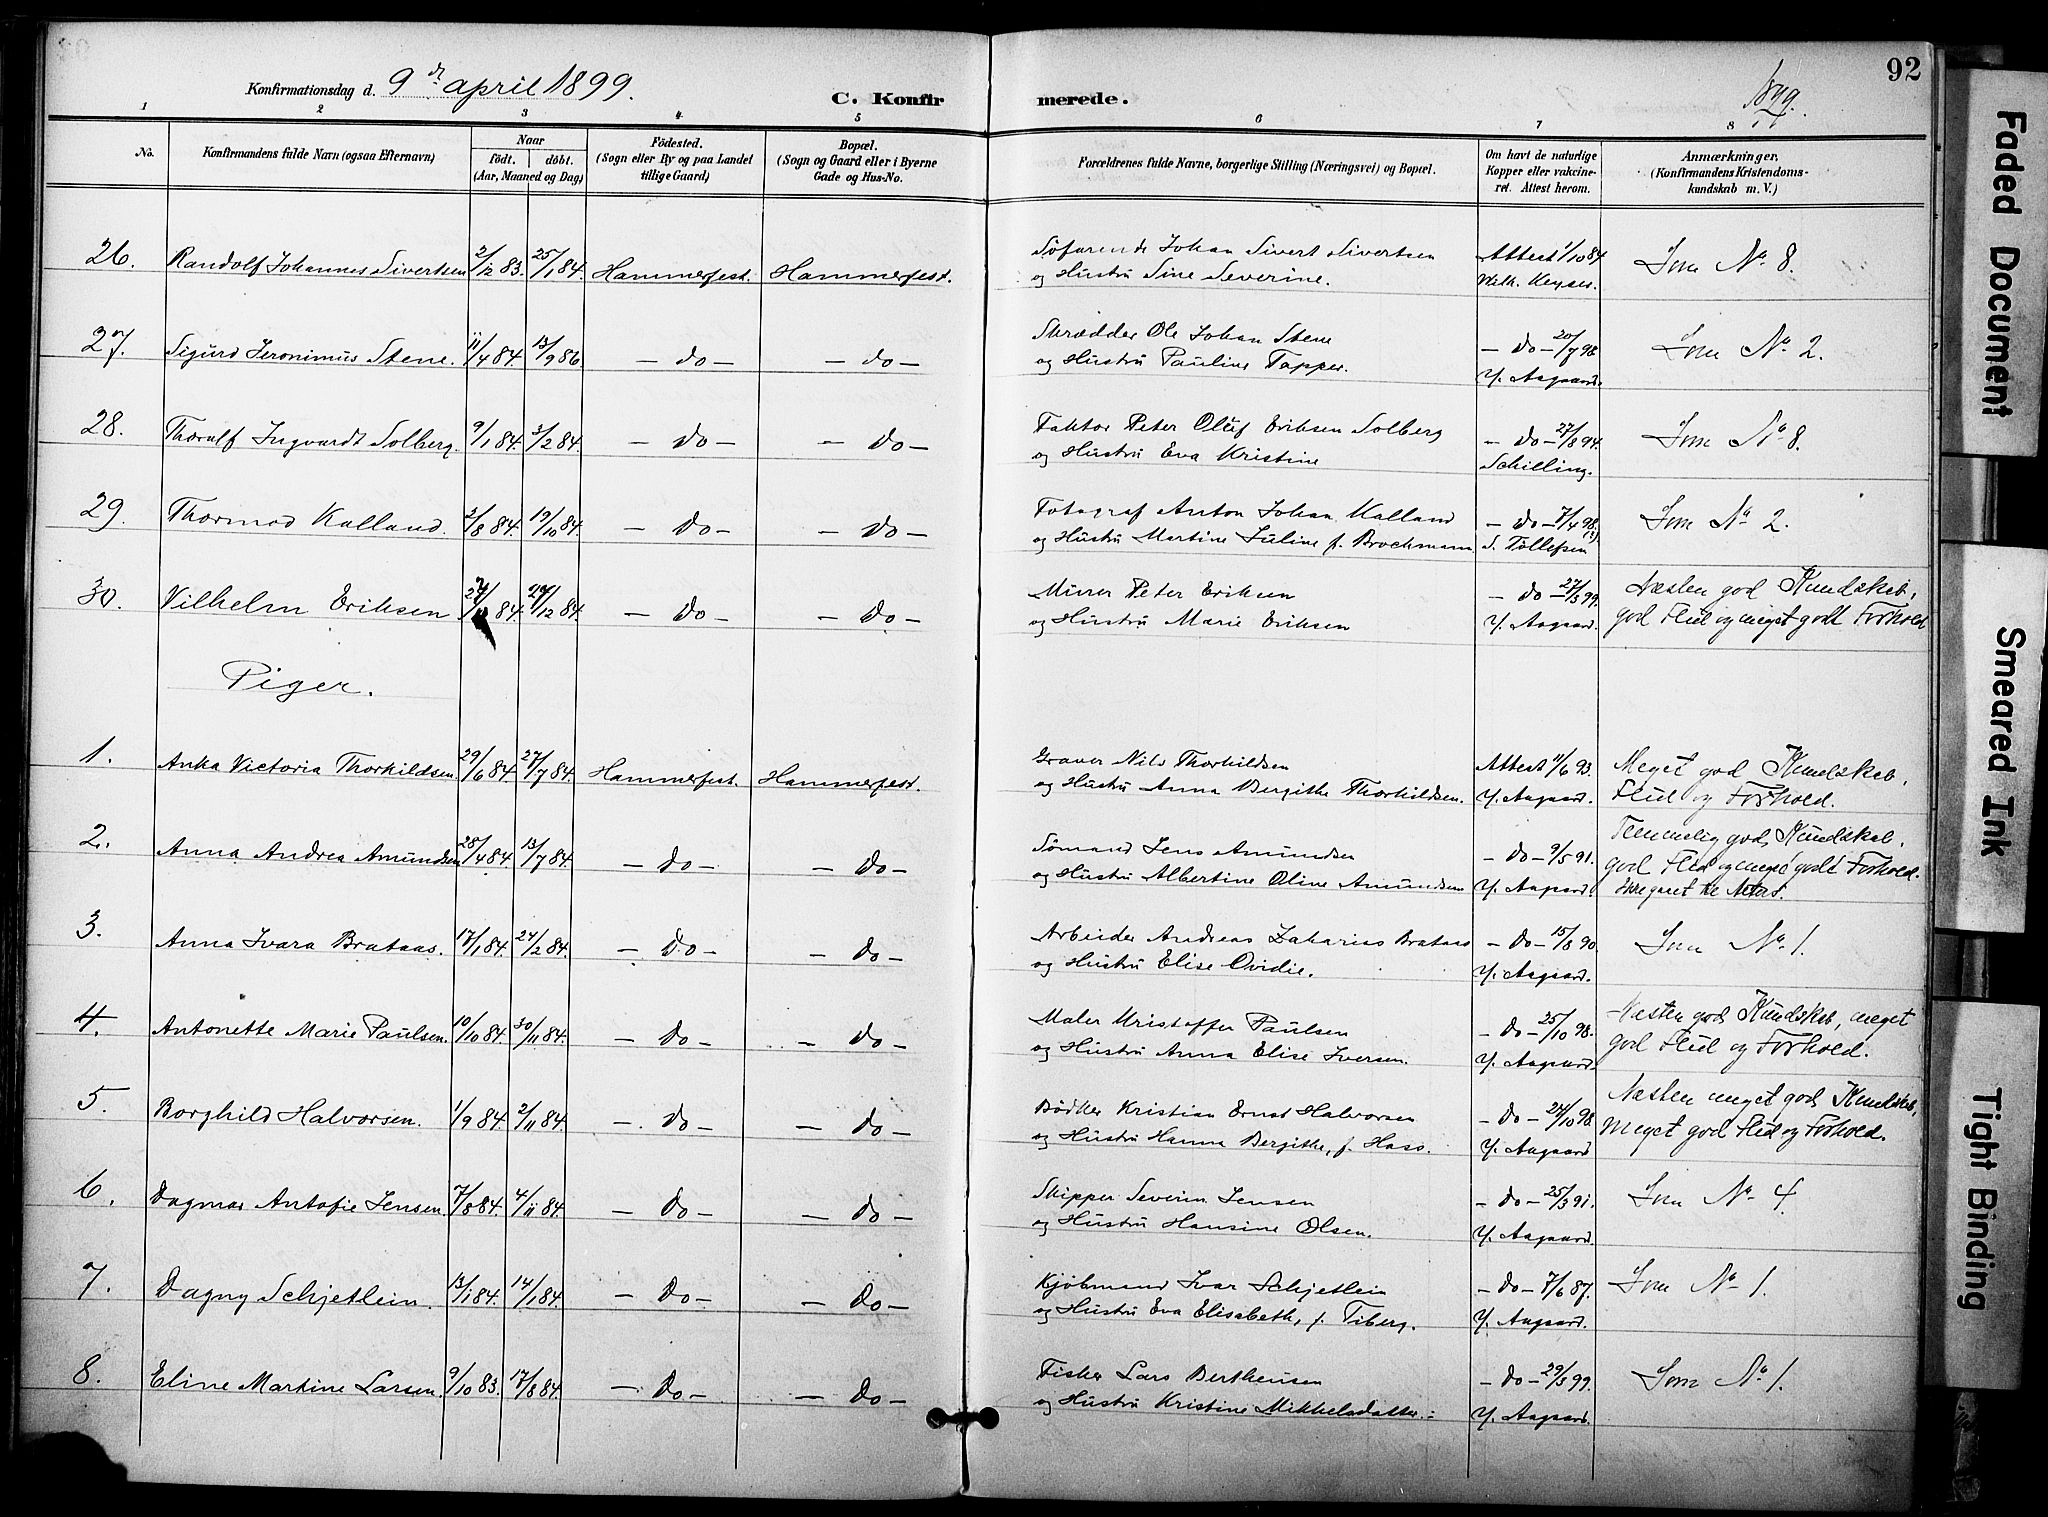 92
Konfirmationsdag d. 9de april 1899.
C. Konfirmerede.
1899.
1 2 3 4 5 6 7 8
No.
Konfirmandens fulde Navn (ogsaa Efternavn)
Naar
födt. döbt.
(Aar, Maaned og Dag)
Födested.
(Sogn eller By og paa Landet
tillige Gaard)
Bopæl.
(Sogn og Gaard eller i Byerne
Gade og Hus-No.
Forældrenes fulde Navne, borgerlige Stilling (Næringsvei) og Bopæl.
Om havt de naturlige
Kopper eller vakcine-
ret. Attest herom.
Anmærkninger.
(Konfirmandens Kristendoms-
kundskab m. V.)
26. Randolf Johannes Sivertsen 2/12 83. 25/1 84. Hammerfest. Hammerfest. Söfarende Johan Sivert Sivertsen Attest 1/10 84 Som No 8.
og Hustru Sine Severine. Wilh. Keyser.
27. Sigurd Jeronimus Stene. 11/4 84. 13/9 86. - do - - do - Skrædder Ole Johan Stene - do - 20/7 98. Som No 2.
og Hustru Pauline Tapper. Y. Aagaard.
28. Thoralf Ingvardt Solberg. 9/1 84. 3/2 84. - do - - do - Faktor Peter Oluf Eriksen Solberg - do - 27/8 94. Som No 8.
og Hustru Eva Kristine Schilling.
29. Thormod Kalland. 2/8 84. 19/10 84. - do - - do - Fotograf Anton Johan Kalland - do - 7/4 98. Som No 2.
og Hustru Martine Juline f. Brochmann S. Tollefsen
30. Vilhelm Eriksen 84. /12 84. - do - - do - Murer Peter Eriksen - do - 27/3 99. Næsten god Kundskab,
og Hustru Marie Eriksen Y. Aagaard. god Flid og meget godt Forhold
Piger.
1. Anka Victoria Thorkildsen 29/6 84. 27/7 84. Hammerfest. Hammerfest. Graver Nils Thorkildsen Attest 11/6 93. Meget god Kundskab,
og Hustru Anna Bergithe Thorkildsen. Y. Aagaard. Flid og Forhold.
2. Anna Andrea Amundsen 28/4 84. 13/7 84. - do - - do - Sömand Jens Amundsen - do - 9/5 91. Temmelig god Kundskab.
og Hustru Albertine Oline Amundsen Y. Aagaard. god Flid og meget godt Forhold.
Ikke gaaet til Alters.
3. Anna Ivara Brataas. 17/1 84. 24/2 84. - do - - do - Arbeider Andreas Zakarias Brataas - do - 15/8 90. Som No 1.
og Hustru Elise Ovidie. Y. Aagaard.
4. Antonette Marie Paulsen. 10/10 84. 30/11 84. - do - - do - Maler Kristoffer Paulsen - do - 25/10 98. Næsten god Kundskab, meget
og Hustru Anna Elise Iversen. Y. Aagaard. god Flid og Forhold.
5. Borghild Halvorsen. 1/9 84. 2/11 84. - do - - do - Bödker Kristian Ernst Halvorsen - do - 24/10 98. Næsten meget god Kundskab,
og Hustru Hanna Bergithe, f. Hass. Y. Aagaard meget god Flid og Forhold.
6. Dagmar Antofie Jensen. 7/8 84. 4/11 84. - do - - do - Skipper Severin Jensen - do - 25/3 91. Som No 4.
og Hustru Hansine Olsen. Y. Aagaard.
7. Dagny Schjetlein. 13/1 84. 14/1 84. - do - - do - Kjöbmand Ivar Schjetlein - do - 7/6 87. Som No 1.
og Hustru Eva Elisabeth, f. Tiberg. Y. Aagaard.
8. Eline Martine Larsen. 9/10 83. 17/8 84. - do - - do - Fisker Lars Berthensen - do - 29/3 99. Som No 1.
og Hustru Kristine Mikkelsdatter. Y. Aagaard.
Faded Document
Smeared Ink
Tight Binding